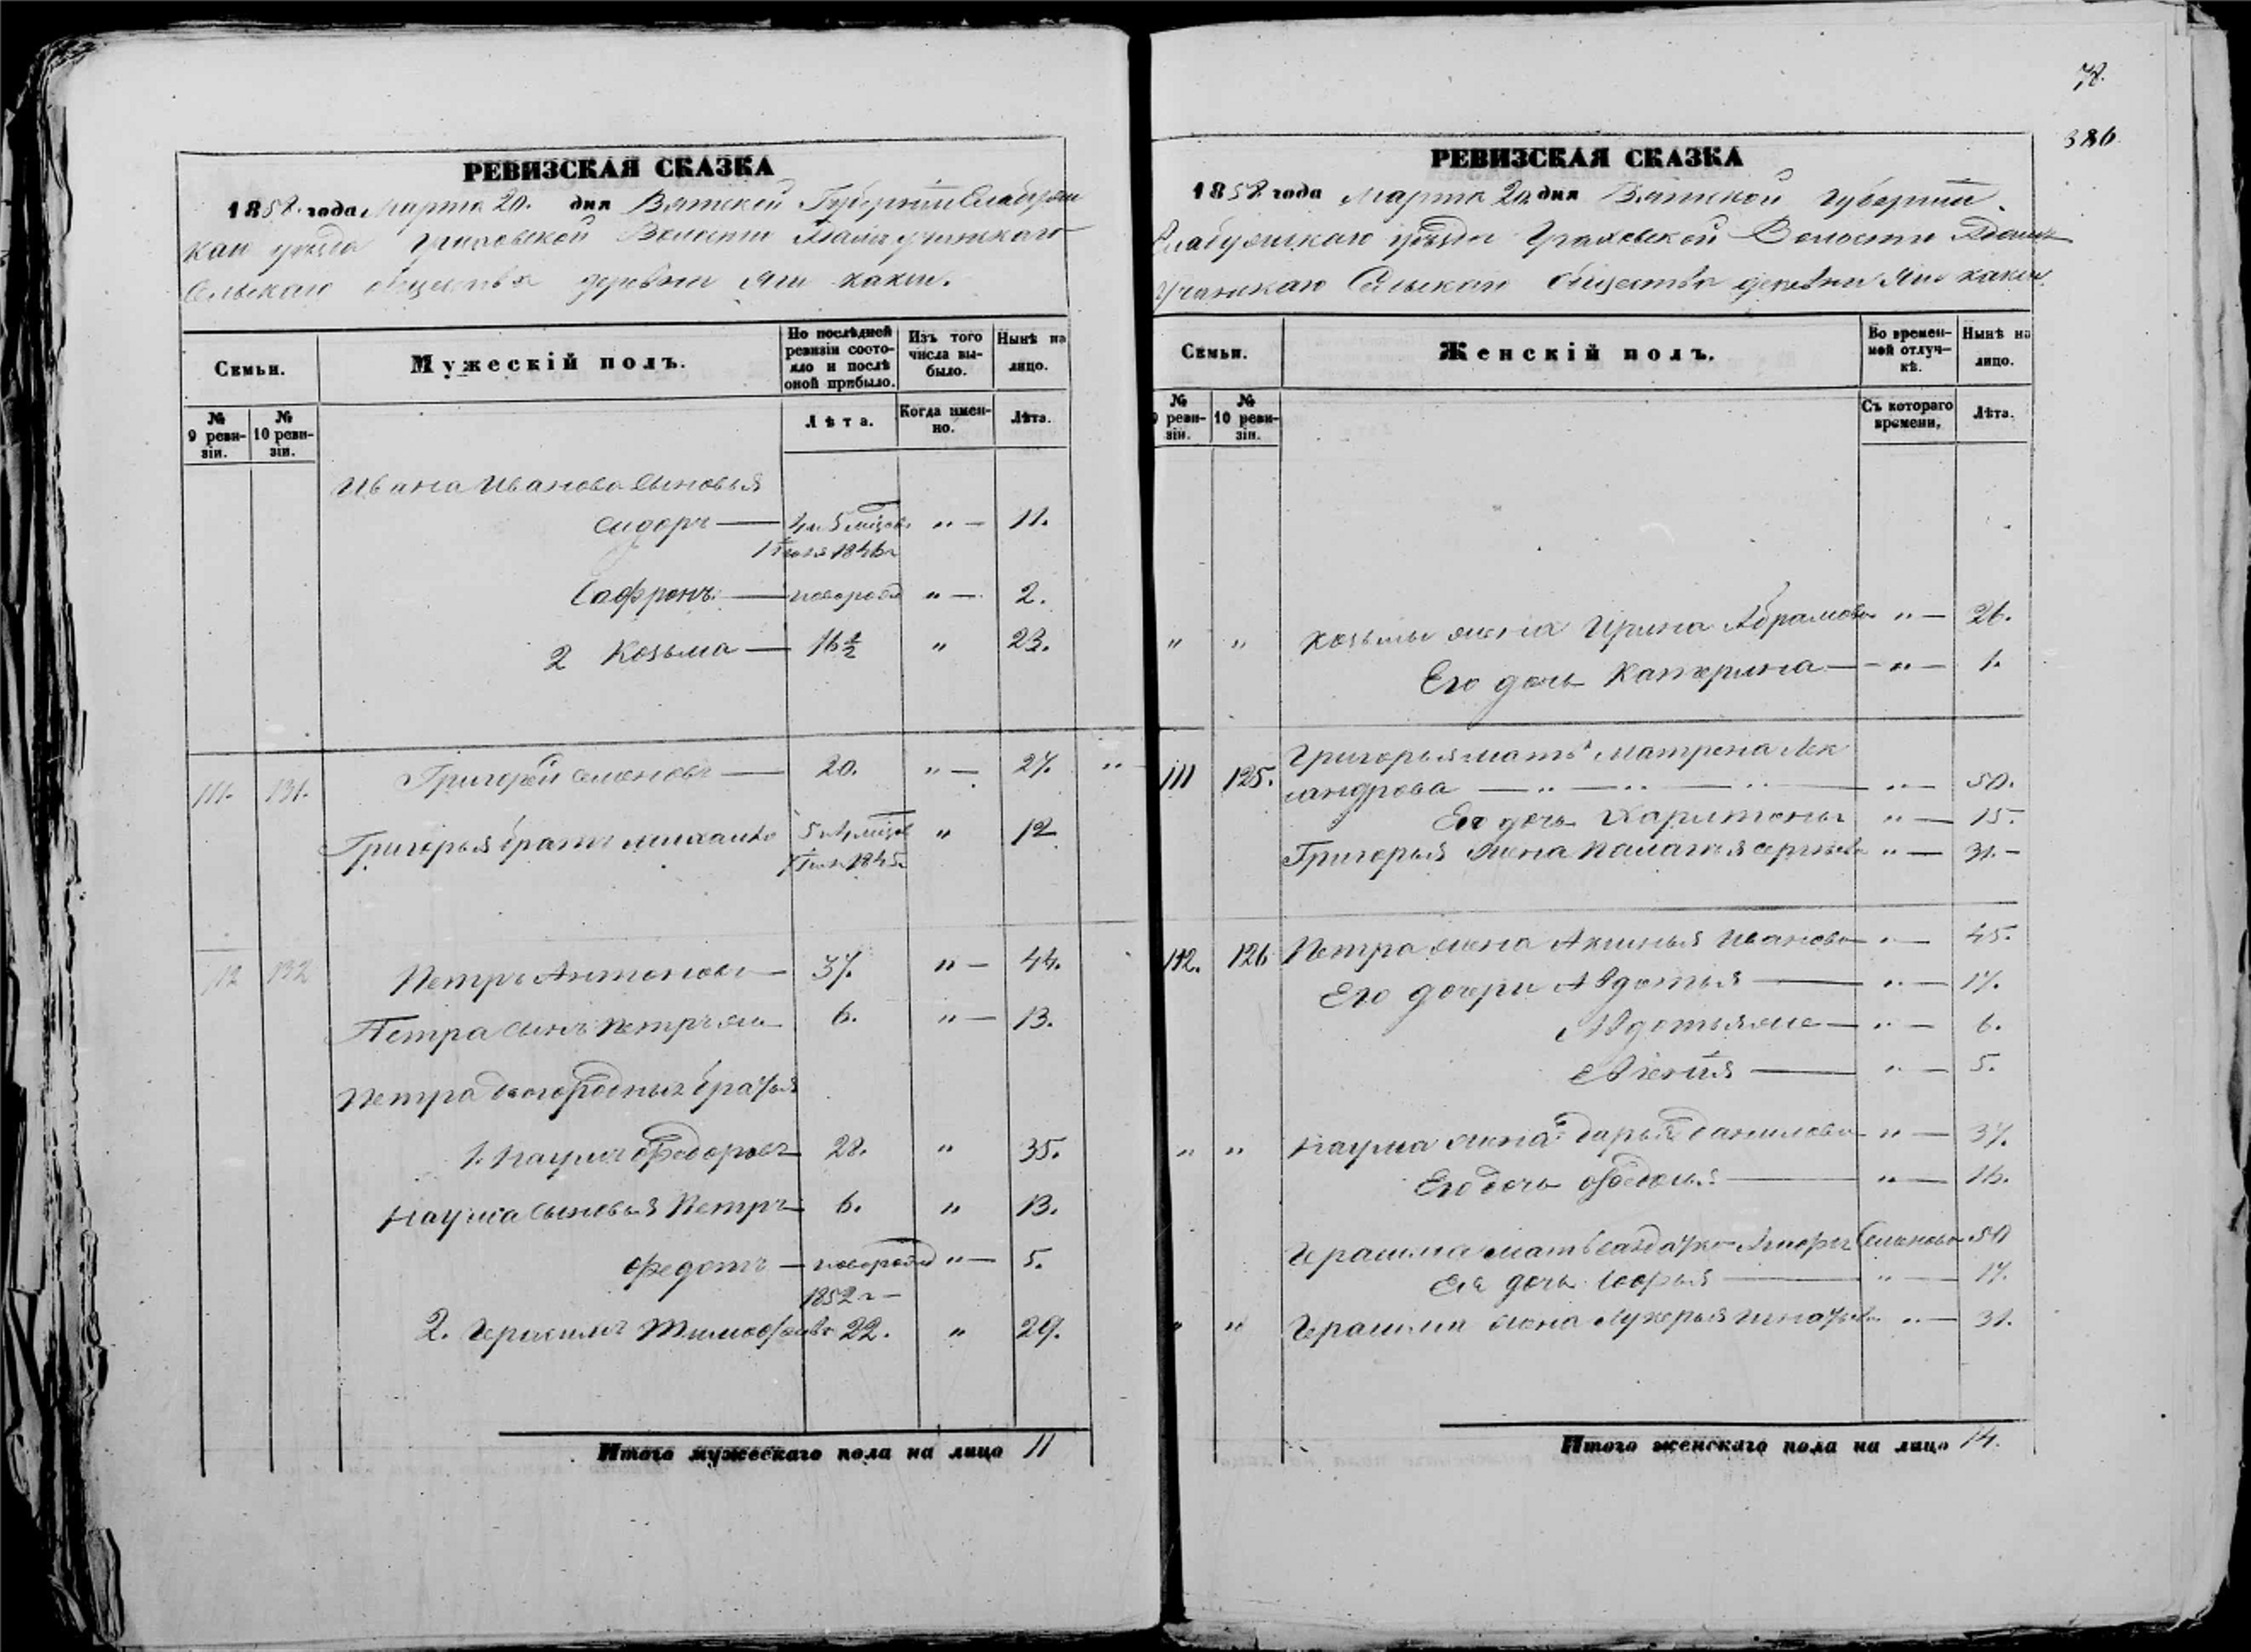 РЕВИЗСКАЯ СКАЗКА
1858 года Марта 20. дня Вятской Губернии Елабужс
каго уѣзда Граховской Волости Адамъ учинскаго
Сельскаго общества деревни Яги какси.
Семьи.
Мужескій полъ.
По послѣдней ревизіи состояло и послѣ оной прибыло.
Изъ того числа выбыло.
Нынѣ на лицо.
№ 9 ревизіи.
№ 10 ревизіи.
Лѣта.
Когда именно.
Лѣта.
Ивана Иванова сыновья
Сидоръ — 4 и 5 мѣсяц. „ — 11.
1846
Сафронъ — новорожд „ — 2.
2 Козьма — 16½ „ 23.
111. 131. Григорей Семеновъ — 20. „ — 27. „
Григорья братъ Михайло 5 и 4 мѣсяц „ 12
1845
112 132 Петръ Антоновъ — 37. „ — 44.
Петра сынъ Петръ же 6. „ — 13.
Петра двоюродныя братья
1. Наумъ Федоровъ 28. „ 35.
Наума сыновья Петръ 6. „ 13.
Федотъ — новорожд „ — 5.
1852 г —
2. Герасимъ Тимофеевъ 22. „ 29.
Итого мужескаго пола на лицо 11
78.
386
РЕВИЗСКАЯ СКАЗКА
1858 года Марта 20 дня Вятской Губернии
Елабужскаго уѣзда Граховской Волости Адамъ
Учинскаго Сельскаго Общества деревни Яги какси
Семьи.
Женскій полъ.
Во временной отлучкѣ.
Нынѣ на лицо.
№ 9 ревизіи.
№ 10 ревизіи.
Съ котораго времени.
Лѣта.
„ „ Козьмы жена Ирина Абрамова „ — 26.
Его дочь Катерина — „ — 1.
111 125. Григорья мать Матрена Лек
сандрова — „ — „ — „ — „ — 50.
Ее дочь Харитонья „ — 15.
Григорья жена Палагея Сергеева „ — 31. —
112. 126 Петра жена Аксинья Иванова „ — 45.
Его дочери Авдотья — „ — 17.
Авдотья же — „ — 6.
— „ — 5.
„ „ Наума жена Дарья Данилова „ — 37.
Его дочь Федосья — „ — 16.
Герасима мать Семенова 50
Ея дочь Софья — „ — 17.
„ „ Герасима жена Лукерья Игнатьева „ — 31.
Итого женскаго пола на лицо 14.